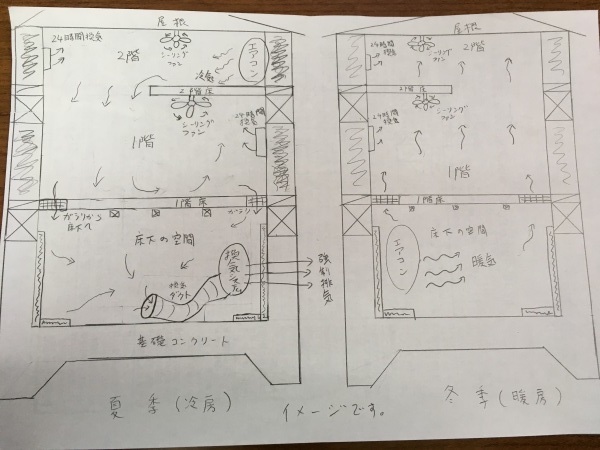 屋根
24時間換気
2階
シーリング
ファン
冷気
エアコン
2階床
シーリング
ファン
24時間
換気
1階
1階床
ガラリから
床下へ
ガラリ
床下の空間
換気
ダクト
換気システム
強制排気
基礎コンクリート
夏季(冷房)
イメージです。
屋根
24時間換気
シーリング
ファン
2階
2階床
24時間
換気
シーリング
ファン
1階
1階床
エアコン
床下の空間
暖気
冬季(暖房)